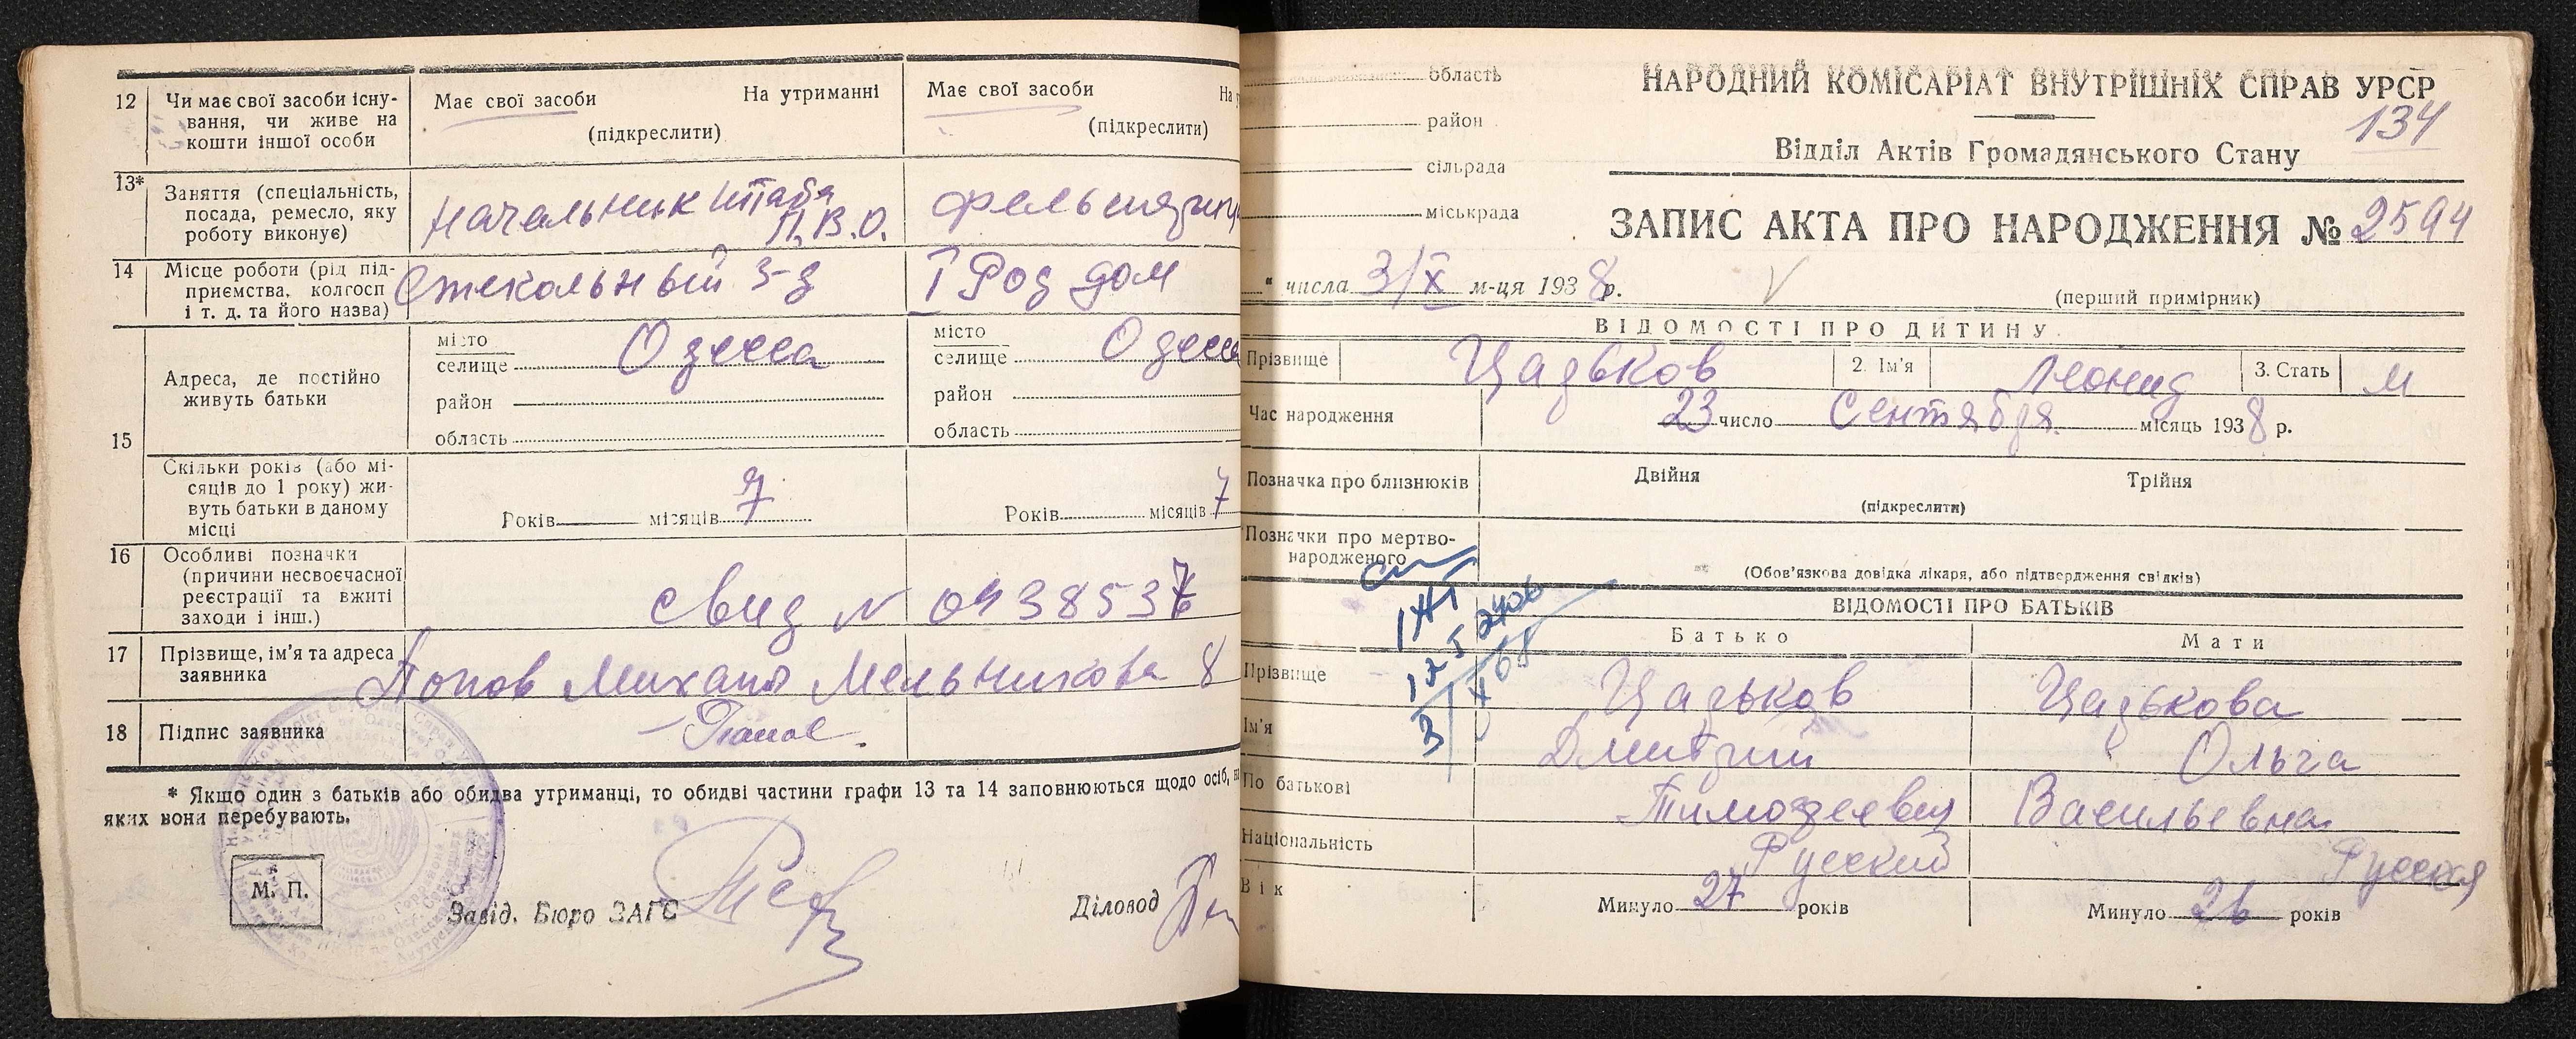 12 Чи має свої засоби існу-
вання, чи живе на
кошти іншої особи
Має свої засоби На утриманні
(підкреслити)
Має свої засоби
(підкреслити)
13* Заняття (спеціальність,
посада, ремесло, яку
роботу виконує)
Начальник Штаба
П.В.О.
14 Місце роботи (рід під-
приємства, колгосп
і т. д. та його назва)
Стекольный з-д
I Род дом
15 Адреса, де постійно
живуть батьки
місто
селище Одесса
район
область
місто
селище
район
область
Скільки років (або мі-
сяців до 1 року) жи-
вуть батьки в даному
місці
Років місяців 7
Років місяців 7
16 Особливі позначки
(причини несвоєчасної
реєстрації та вжиті
заходи і інш.)
свид N
17 Прізвище, ім'я та адреса
заявника
Попов Михаил Мельникова 8
18 Підпис заявника
* Якщо один з батьків або обидва утриманці, то обидві частини графи 13 та 14 заповнюються щодо осіб, на
яких вони перебувають.
М. П.
Завід. Бюро ЗАГС
Діловод
область
район
сільрада
міськрада
НАРОДНИЙ КОМІСАРІАТ ВНУТРІШНІХ СПРАВ УРСР
134
Відділ Актів Громадянського Стану
ЗАПИС АКТА ПРО НАРОДЖЕННЯ № 2594
" числа 3/X м-ця 1938 р.
(перший примірник)
ВІДОМОСТІ ПРО ДИТИНУ
Прізвище Цадьков 2. Ім'я Леонид 3. Стать М
Час народження 23 число Сентября місяць 1938 р.
Позначка про близнюків Двійня Трійня
(підкреслити)
Позначки про мертво-
народженого
(Обов'язкова довідка лікаря, або підтвердження свідків)
ВІДОМОСТІ ПРО БАТЬКІВ
Батько Мати
Прізвище Цадьков Цадькова
Ім'я Дмитрий Ольга
По батькові Тимофеевич Васильевна
Національність Русский Русская
Вік Минуло 27 років Минуло 26 років